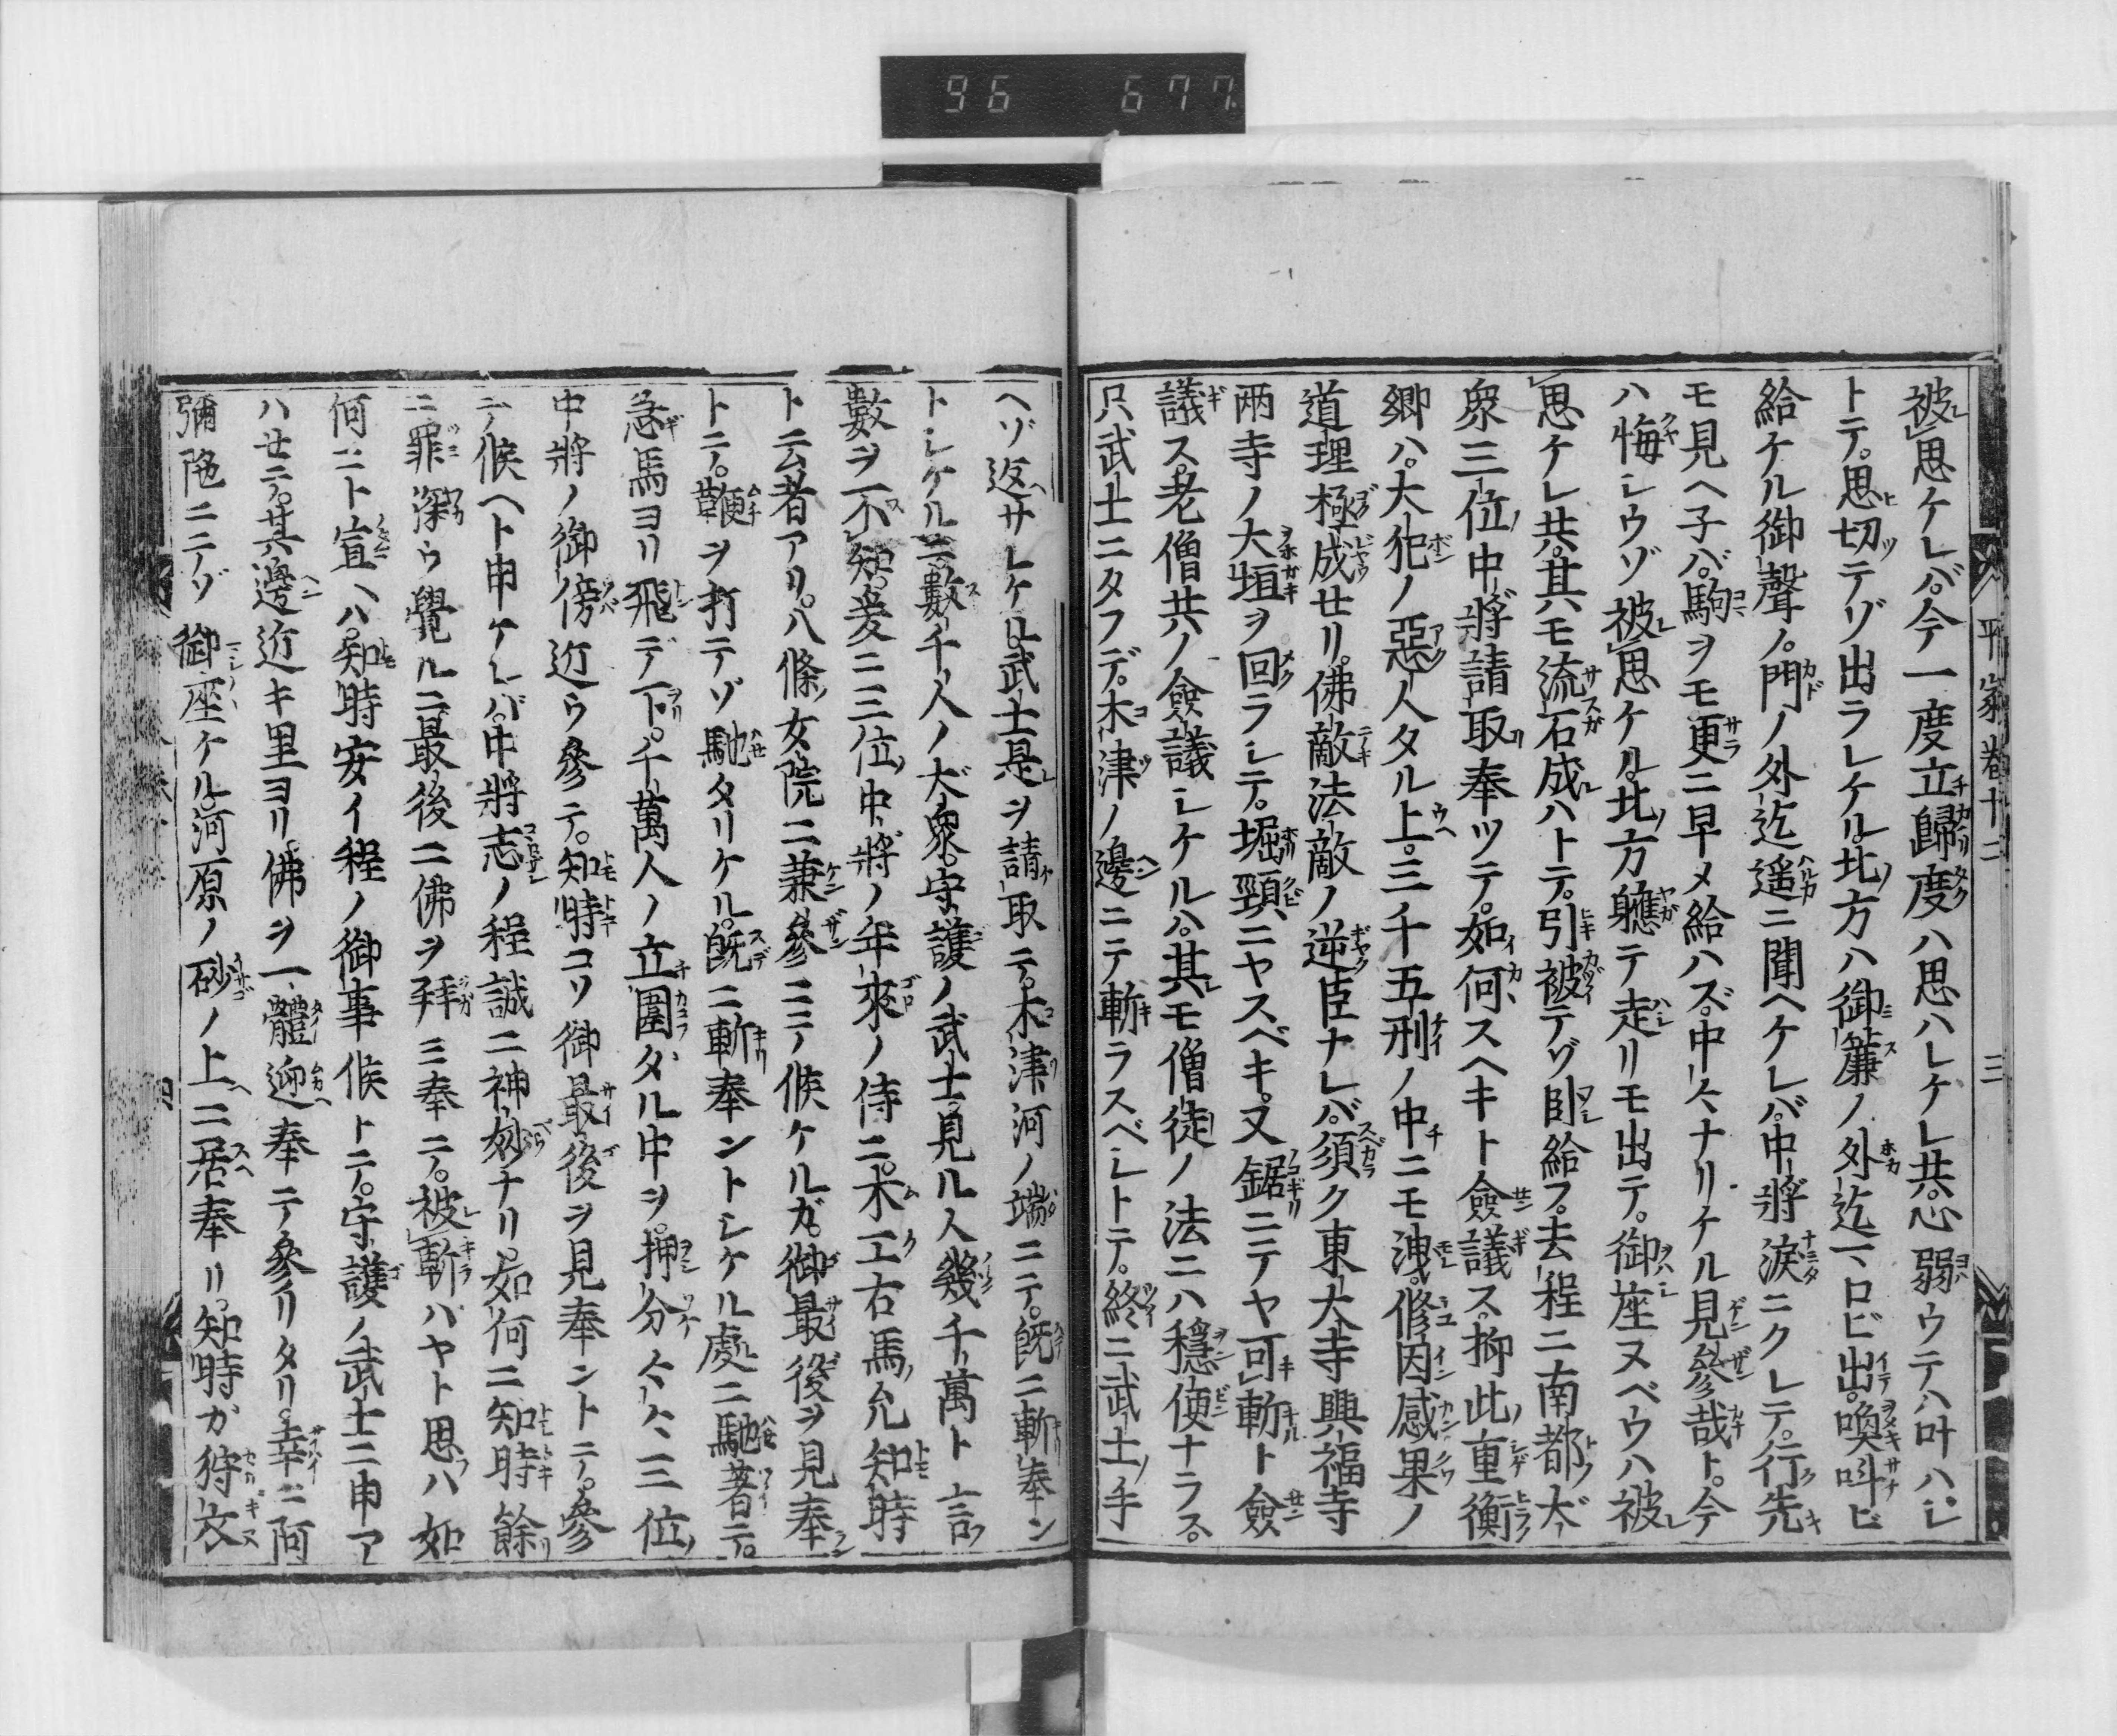 96 677
平家巻十二 三
被思ケレバ。今一度立歸度ハ思ハレケレ共。心弱ウテハ叶ハジ
トテ。思切テゾ出ラレケル。北方ハ御簾ノ外迄マロビ出。喚叫ビ
給ケル御聲ノ。門ノ外迄遥ニ聞ヘケレバ。中將涙ニクレテ。行先
モ見ヘ子バ。駒ヲモ更ニ早メ給ハズ。中〱ナリケル見參哉ト。今
ハ悔シウゾ被思ケル。北方軈テ走リモ出テ。御座ヌベウハ被
思ケレ共。其モ流石成ハトテ。引被テゾ臥給フ。去程ニ南都大
衆三位中將請取奉ツテ。如何スヘキト僉議ス。抑此重衡
卿ハ。大犯ノ惡人タル上。三千五刑ノ中ニモ洩。修因感果ノ
道理極成セリ。佛敵法敵ノ逆臣ナレバ。須ク東大寺興福寺
両寺ノ大垣ヲ回ラシテ。堀頸ニヤスベキ。又鋸ニテヤ可斬ト僉
議ス。老僧共ノ僉議シケルハ。其モ僧徒ノ法ニハ穩便ナラス。
只武士ニタフデ。木津ノ邊ニテ斬ラスベシトテ。終ニ武士ノ手
ヘゾ返サレケル。武士是ヲ請取テ。木津河ノ端ニテ。既ニ斬奉ン
トシケルニ。數千人ノ大衆。守護ノ武士。見ル人幾千萬ト云
數ヲ不知。爰ニ三位中將ノ年來ノ侍ニ。木工右馬允知時
ト云者アリ。八條女院ニ兼參ニテ候ケルガ。御最後ヲ見奉
トテ。鞭ヲ打テゾ馳タリケル。既ニ斬奉ントシケル處ニ馳著テ。
急馬ヨリ飛デ下。千萬人ノ立圍ダル中ヲ。押分〱三位
中將ノ御傍近ウ參テ。知時コソ御最後ヲ見奉ントテ。參
テ候ヘト申ケレバ。中將志ノ程誠ニ神妙ナリ。如何ニ知時餘
ニ罪深ウ覺ルニ。最後ニ佛ヲ拜ミ奉テ。被斬バヤト思ハ如
何ニト宣ヘハ。知時安イ程ノ御事候トテ。守護ノ武士ニ申ア
ハセテ。其邊近キ里ヨリ。佛ヲ一體迎奉テ參リタリ。幸ニ阿
彌陀ニテゾ御座ケル。河原ノ砂ノ上ニ居奉リ。知時ガ狩衣